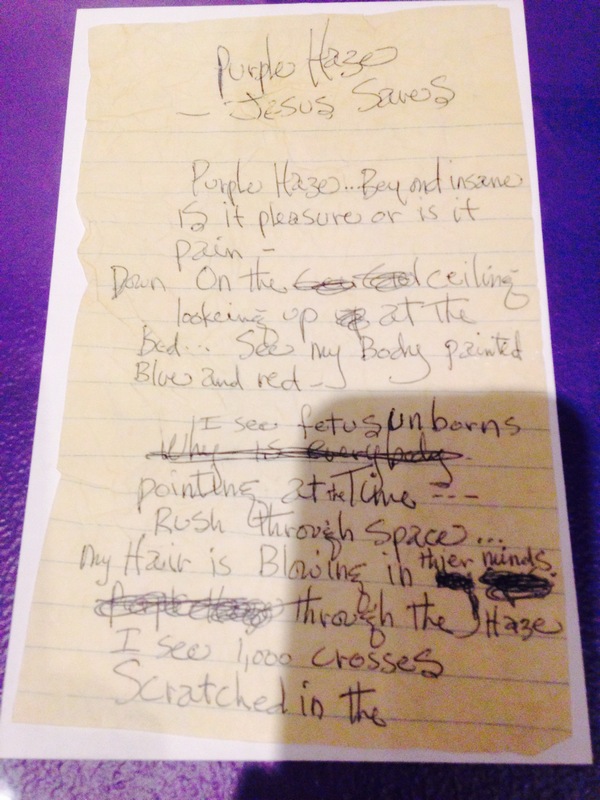 Purple Haze
- Jesus Saves
Purple Haze... Beyond insane
is it pleasure or is it
pain -
Down On the ceiling
lookeing up at the
Bed... See my Body painted
Blue and red -
I see fetus unborns
Why is everybody
pointing at the Time ---
Rush through Space...
my Hair is Blowing in thier minds
through the Haze
I see 1,000 crosses
Scratched in the